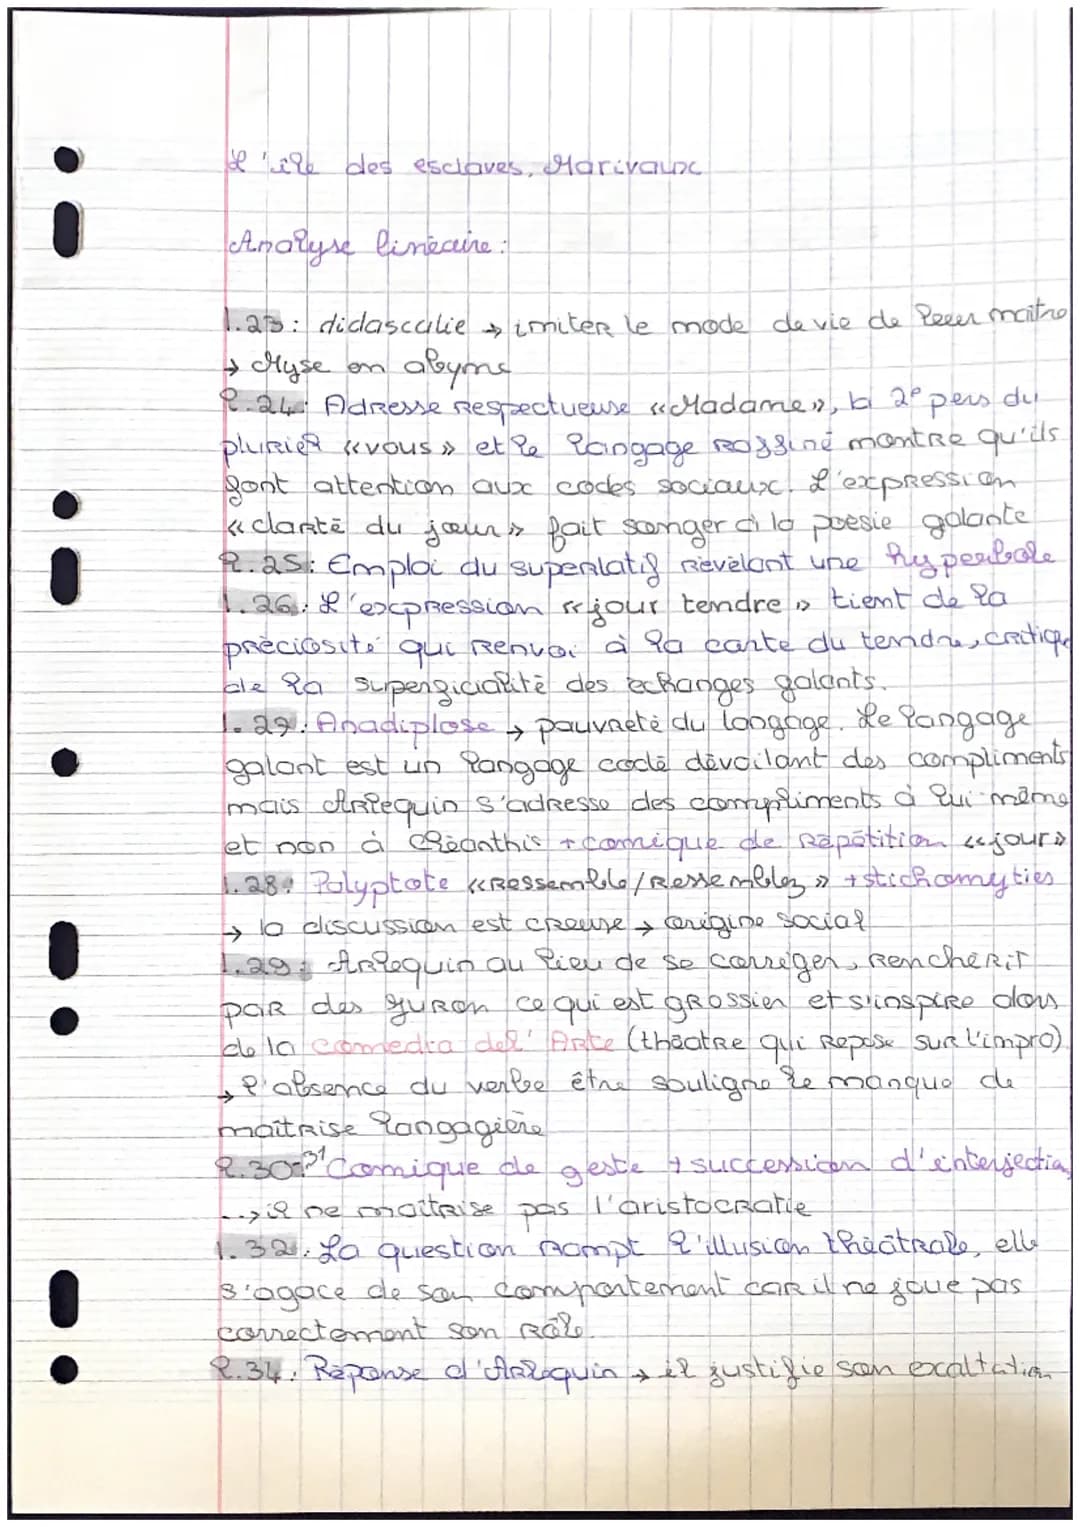 L'île des esclaves, Marivaux
Analyse linéaire :
l.23 : didascalie → imiter le mode de vie de leur maître
→ Myse en abyme
l.24 : Adresse respectueuse «Madame», la 2e pers du
pluriel «vous» et le langage raffiné montre qu'ils
font attention aux codes sociaux. L'expression
«clarté du jour» fait songer à la poésie galante
l.25 : Emploi du superlatif révélant une hyperbole
l.26 : L'expression «jour tendre» tient de la
préciosité qui renvoi à la carte du tendre, critique
de la superficialité des échanges galants.
l.27 : Anadiplose → pauvreté du langage. Le langage
galant est un langage codé dévoilant des compliments
mais Arlequin s'adresse des compliments à lui même
et non à Cléanthis + comique de répétition «jour»
l.28 : Polyptote «Ressemble/Ressemblez» + stichomyties
→ la discussion est creuse → origine social
l.29 : Arlequin au lieu de se corriger, renchérit
par des juron ce qui est grossier et s'inspire alors
de la comedia del' Arte (théâtre qui repose sur l'impro)
→ l'absence du verbe être souligne le manque de
maîtrise langagière
l.30-31 Comique de geste + succession d'interjection
..→ il ne maîtrise pas l'aristocratie
l.32 : La question rompt l'illusion théâtrale, elle
s'agace de son comportement car il ne joue pas
correctement son rôle.
l.34 : Réponse d'Arlequin → il justifie son exaltation